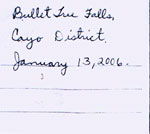 Bullet Tree Falls,
Cayo District.
January 13, 2006.